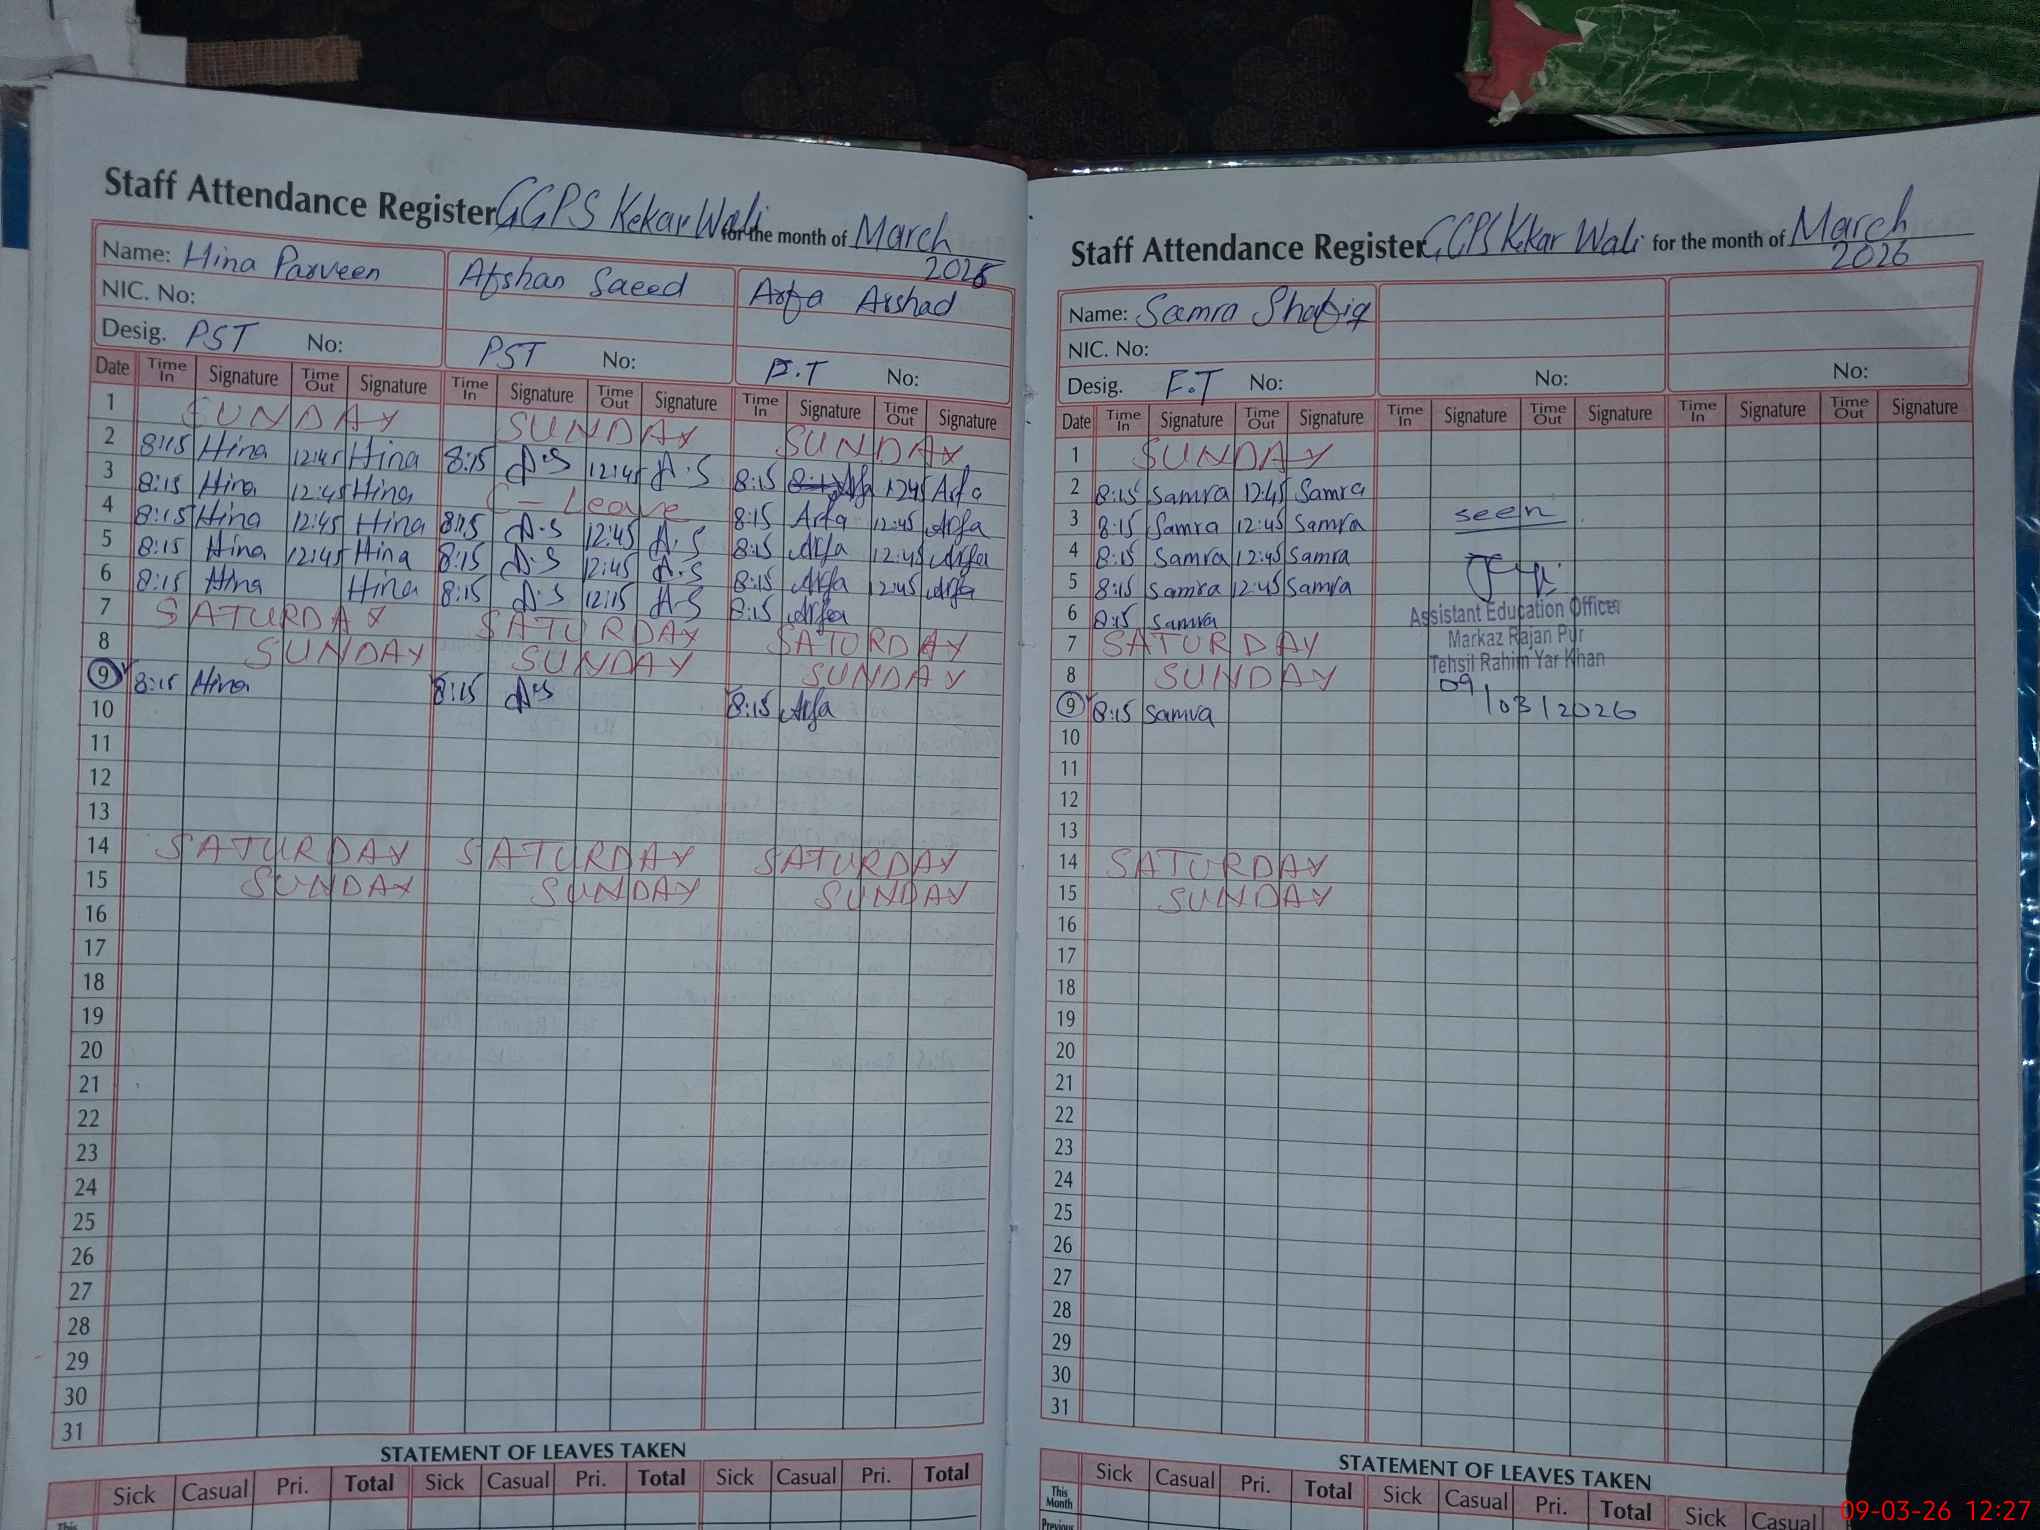 Staff Attendance Register GGPS Kekar Wali for the month of March 2026
Name: Hina Parveen Afshan Saeed Arfa Arshad
NIC. No:
Desig. PST No: PST No: E.T No:
Date Time In Signature Time Out Signature Time In Signature Time Out Signature Time In Signature Time Out Signature
1 SUNDAY SUNDAY SUNDAY
2 8:15 Hina 12:45 Hina 8:15 A.S 12:45 A.S 8:15 Arfa 12:45 Arfa
3 8:15 Hina 12:45 Hina C-Leave 8:15 Arfa 12:45 Arfa
4 8:15 Hina 12:45 Hina 8:15 A.S 12:45 A.S 8:15 Arfa 12:45 Arfa
5 8:15 Hina 12:45 Hina 8:15 A.S 12:45 A.S 8:15 Arfa 12:45 Arfa
6 8:15 Hina Hina 8:15 A.S 12:15 A.S 8:15 Arfa
7 SATURDAY SATURDAY SATURDAY
8 SUNDAY SUNDAY SUNDAY
9 8:15 Hina 8:15 A.S 8:15 Arfa
10
11
12
13
14 SATURDAY SATURDAY SATURDAY
15 SUNDAY SUNDAY SUNDAY
16
17
18
19
20
21
22
23
24
25
26
27
28
29
30
31
STATEMENT OF LEAVES TAKEN
Sick Casual Pri. Total Sick Casual Pri. Total Sick Casual Pri. Total
This
Staff Attendance Register GGPS Kekar Wali for the month of March 2026
Name: Samra Shafiq
NIC. No:
Desig. E.T No: No: No:
Date Time In Signature Time Out Signature Time In Signature Time Out Signature Time In Signature Time Out Signature
1 SUNDAY
2 8:15 Samra 12:45 Samra
3 8:15 Samra 12:45 Samra seen
4 8:15 Samra 12:45 Samra
5 8:15 Samra 12:45 Samra
6 8:15 Samra Assistant Education Officer
7 SATURDAY Markaz Rajan Pur
8 SUNDAY Tehsil Rahim Yar Khan
9 8:15 Samra 09/03/2026
10
11
12
13
14 SATURDAY
15 SUNDAY
16
17
18
19
20
21
22
23
24
25
26
27
28
29
30
31
STATEMENT OF LEAVES TAKEN
Sick Casual Pri. Total Sick Casual Pri. Total Sick Casual
This Month
Previous
09-03-26 12:27